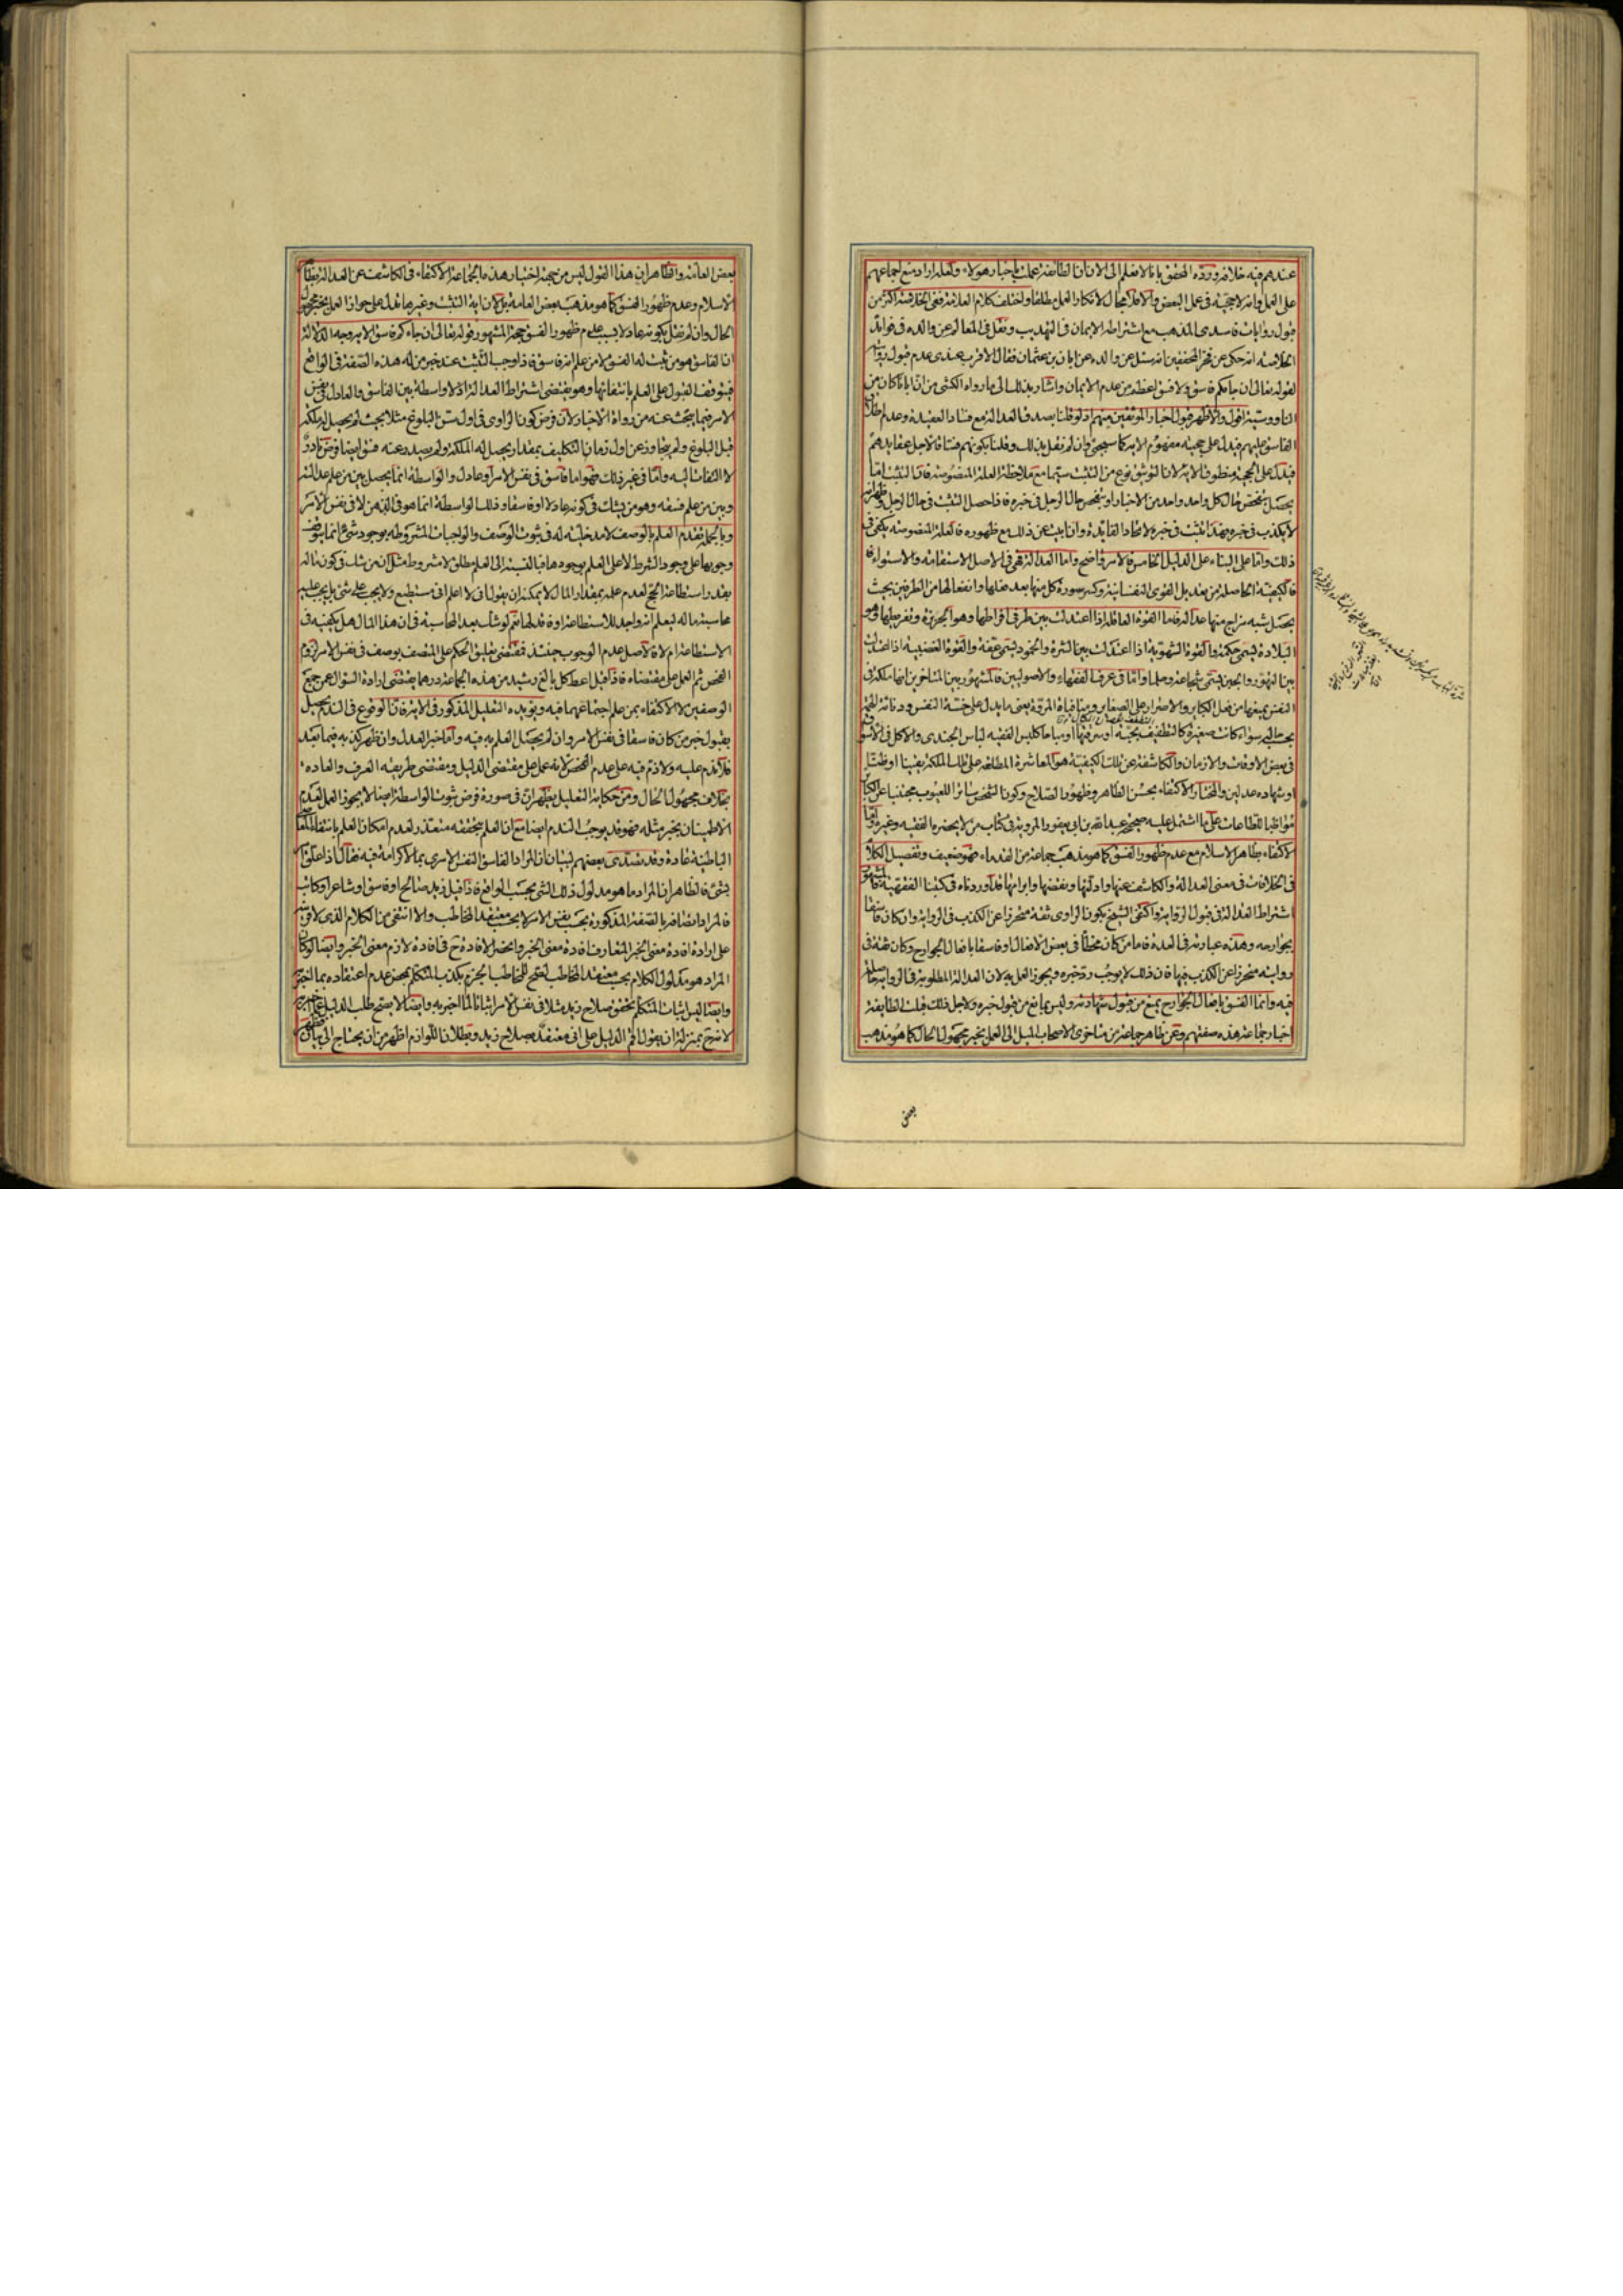 عندهم فيه خلافه ورده المحقق بانا لا نعلم الى الان ان الطائفة عملت باخبار هؤلاء ولعله اراد منع اجماعهم
على العمل وانه لا حجية فى عمل البعض والا فلا مجال لانكار العمل مطلقا واختلف كلام العلامة ففى الخلاصة اكثر من
قبول روايات فاسدى المذهب مع اشتراطه الايمان فى التهذيب ونقل فى المعالم عن والده فى فوائد
الخلاصة انه حكى عن فخر المحققين انه سئل عن والده عن ابان بن عثمان فقال الاقرب عندى عدم قبول روايته
لقوله تعالى ان جاءكم فاسق ولا فسق اعظم من عدم الايمان واشار بذلك الى ما رواه الكشى من ان ابانا كان من
الناووسية اقول والاظهر قبول اخبار الموثقين منهم اذ لو قلنا بصدق العدالة مع فساد العقيدة وعدم اطلاق
الفاسق عليهم فيدل على حجيته مفهوم الاية كما سيجئ وان لم نقل بذلك وقلنا بكونهم فساقا لاجل عقايدهم
فيدل على الحجية منطوق الاية لان التوثيق نوع من التثبت سيما مع ملاحظة العلة المنصوصة فان التثبت اما
يحصل بتفحص حال كل واحد واحد من الاخبار او بتفحص حال الرجل فى خبره فاذا حصل التثبت فى حال الرجل وظهر انه
لا يكذب فى خبره فهذا تثبت فى خبره لاتحاد الفايدة وان ابيت عن ذلك مع ظهوره فالعلة المنصوصة يكفى فى
ذلك واما على البناء على الدليل الخامس فالامر واضح واما العدالة فهى فى الاصل الاستقامة والاستواء
فالكيفية الحاصلة من تعديل القوى النفسانية وكسر سورة كل منها بعد فعلها وانفعالها من الطرفين بحيث
يحصل شبه مزاج منها عدالة فاما القوة العاقلة اذا اعتدلت بين طرفى افراطها وهو الجربزة وتفريطها وهو
البلادة يسمى حكمة والقوة الشهوية اذا اعتدلت بين الشره والخمود يسمى عفة والقوة الغضبية اذا اعتدلت
بين التهور والجبن يسمى شجاعة وحلما واما فى عرف الفقهاء والاصوليين فالمشهور بين المتاخرين انها ملكة فى
النفس يمنعها من فعل الكباير والاصرار على الصغاير ومنافيات المروة يعنى ما يدل على خسة النفس ودنائة الهمة
بحسب حاله سواء كانت صغيرة كالتطفيف بحبة او سرقتها او مباحا كلبس الفقيه لباس الجندى والاكل فى الاسواق
فى بعض الاوقات والازمان والكاشف عن تلك الكيفية هو المعاشرة المطلعة على تلك الملكة يقينا او ظنا
او شهادة عدلين والمختار الاكتفاء بحسن الظاهر وظهور الصلاح وكون الشخص ساترا للعيوب مجتنبا عن الكباير
مواظبا للطاعات على ما اشتمل عليه صحيحة عبد الله بن ابى يعفور المروية فى كتاب من لا يحضره الفقيه وغيره واما
الاكتفاء بظاهر الاسلام مع عدم ظهور الفسق كما هو مذهب جماعة من القدماء فهو ضعيف وتفصيل الكلام
فى الخلافات فى معنى العدالة والكاشف عنها وادلتها ونقضها وابرامها قد اوردناه فى كتبنا الفقهية فالمشهور
اشتراط العدالة فى قبول الرواية واكتفى الشيخ بكون الراوى ثقة متحرزا عن الكذب فى الرواية وان كان فاسقا
بجوارحه وهذه عبارته فى العدة فاما من كان مخطئا فى بعض الافعال او فاسقا بافعال الجوارح وكان ثقة فى
روايته متحرزا عن الكذب فيها فان ذلك لا يوجب رد خبره ويجوز العمل به لان العدالة المطلوبة فى الرواية حاصلة
فيه وانما الفسق بافعال الجوارح يمنع من قبول شهادته وليس بمانع من قبول خبره ولاجل ذلك قبلت الطايفة
اخبار جماعة هذه صفتهم وعن ظاهر جماعة من متاخرى الاصحاب الميل الى العمل بخبر مجهول الحال كما هو مذهب
بعض
بعض العامة والظاهر ان هذا القول ليس من جهة اختيار هذه الجماعة الاكتفاء فى الكاشف عن العدالة بظاهر
الاسلام وعدم ظهور الفسق كما هو مذهب بعض العامة بل لان اية التثبت وغيرها تدل على جواز العمل بخبر مجهول
الحال وان لم نقل بكونه عادلا بسبب عدم ظهور الفسق حجة المشهور قوله تعالى ان جاءكم فاسق الاية وجه الدلالة
ان الفاسق هو من ثبت له الفسق لا من علم انه فاسق فاذا وجب التثبت عند خبر من له هذه الصفة فى الواقع
فيتوقف القبول على العلم بانتفائها وهو يقتضى اشتراط العدالة اذ لا واسطة بين الفاسق والعادل فى نفس
الامر فيما يبحث عنه من رواة الاخبار لان فرض كون الراوى فى اول سن البلوغ مثلا بحيث لم يحصل له ملكة
قبل البلوغ ولم يتجاوز عن اول زمان التكليف بمقدار يحصل له الملكة ولم يصدر عنه فسق ايضا فرض نادر
لا التفات اليه واما فى غير ذلك فهو اما فاسق فى نفس الامر او عادل والواسطة انما يحصل بين من علم عدالته
وبين من علم فسقه وهو من يشك فى كونه عادلا او فاسقا وذلك الواسطة انما هو فى الذهن لا فى نفس الامر
وبالجملة تقدم العلم بالوصف لا مدخلية له فى ثبوت الوصف والواجبات المشروطة بوجود شئ انما يتوقف
وجوبها على وجود الشرط لا على العلم بوجوده فبالنسبة الى العلم مطلق لا مشروط مثل ان من شك فى كون ماله
بقدر استطاعة الحج لعدم علمه بمقدار المال لا يمكنه ان يقول انى لا اعلم انى مستطيع ولا يجب على شئ بل يجب عليه
محاسبة ماله ليعلم انه واجد للاستطاعة او فاقد لها نعم لو شك بعد المحاسبة فى ان هذا المال هل يكفيه فى
الاستطاعة ام لا فالاصل عدم الوجوب حينئذ فمقتضى تعليق الحكم على المتصف بوصف فى نفس الامر لزوم
الفحص ثم العمل على مقتضاه فاذا قيل اعط كل بالغ رشيد من هذه الجماعة درهما يقتضى ارادة السؤال عمن جمع
الوصفين لا الاكتفاء بمن علم اجتماعهما فيه ويؤيده التعليل المذكور فى الاية فان الوقوع فى الندم يحصل
بقبول خبر من كان فاسقا فى نفس الامر وان لم يحصل العلم به فيه واما خبر العدل وان ظهر كذبه فيما بعد
فلا ندم عليه ولا ذم فيه على عدم الفحص لانه عمل على مقتضى الدليل ومقتضى طريقة العرف والعادة
بخلاف مجهول الحال ومن حكاية التعليل يظهر ان فى صورة فرض ثبوت الواسطة ايضا لا يجوز العمل لعدم
الاطمينان بخبر مثله فهو قد يوجب الندم ايضا مع ان العلم بتحققه متعذر لعدم امكان العلم بانتفاء المعاصى
الباطنية عادة وقد تصدى بعضهم لبيان ان المراد الفاسق النفس الامرى بما لا كرامة فيه فقال اذا علق
بشئ فالظاهر ان المراد ما هو مدلول ذلك الشئ بحسب الواقع فاذا قيل زيد صالح او فاسق او شاعر او كاتب
فالمراد اتصافه بالصفة المذكورة بحسب نفس الامر لا بحسب معتقد المخاطب والا انتفى من الكلام الذى لاقى
على ارادة افادة معنى الخبر المتعارف افادة معنى الخبر وانحصر الافادة ح فى افادة لازم معنى الخبر وايضا لو كان
المراد هو مدلول الكلام بحسب معتقد المخاطب لصح للمخاطب الجزم بكذب المتكلم بمحض عدم اعتقاده بما اخبر
وايضا ليس اثبات المتكلم تحقق صلاح زيد مثلا فى نفس الامر اثباتا لما اخبر به وايضا لا يصح طلب الدليل
لانه ح بمنزلة ان يقول اقم الدليل على انى معتقد بصلاح زيد وبطلان اللوازم اظهر من ان يحتاج الى بيان